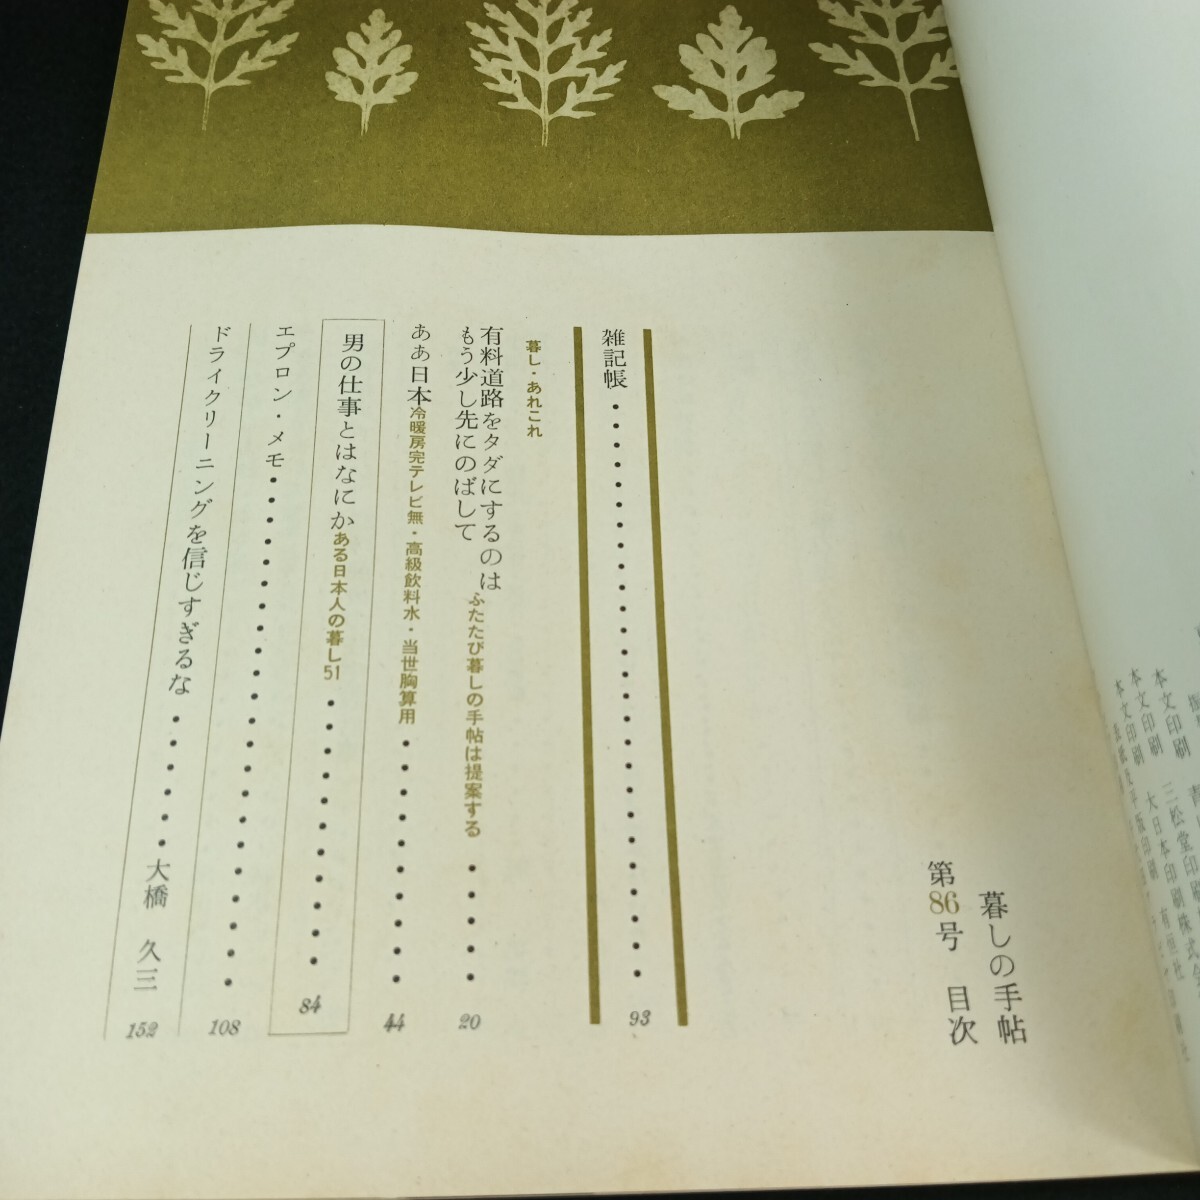 暮しの手帖
第86号 目次
雑記帳・・・・・・・・・・・・・・・・・・・・・・・・93
暮し・あれこれ
有料道路をタダにするのは
もう少し先にのばして
ふたたび暮しの手帖は提案する・・・・・20
ああ日本 冷暖房完テレビ無・高級飲料水・当世胸算用・・・・・・・・・・44
男の仕事とはなにか ある日本人の暮し51・・・・・・・・・・・・84
エプロン・メモ・・・・・・・・・・・・・・・・・・・・108
ドライクリーニングを信じすぎるな・・・・・・大橋 久三 152
本文印刷 青
本文印刷 三松堂印刷株式会
本文印刷 大日本印刷